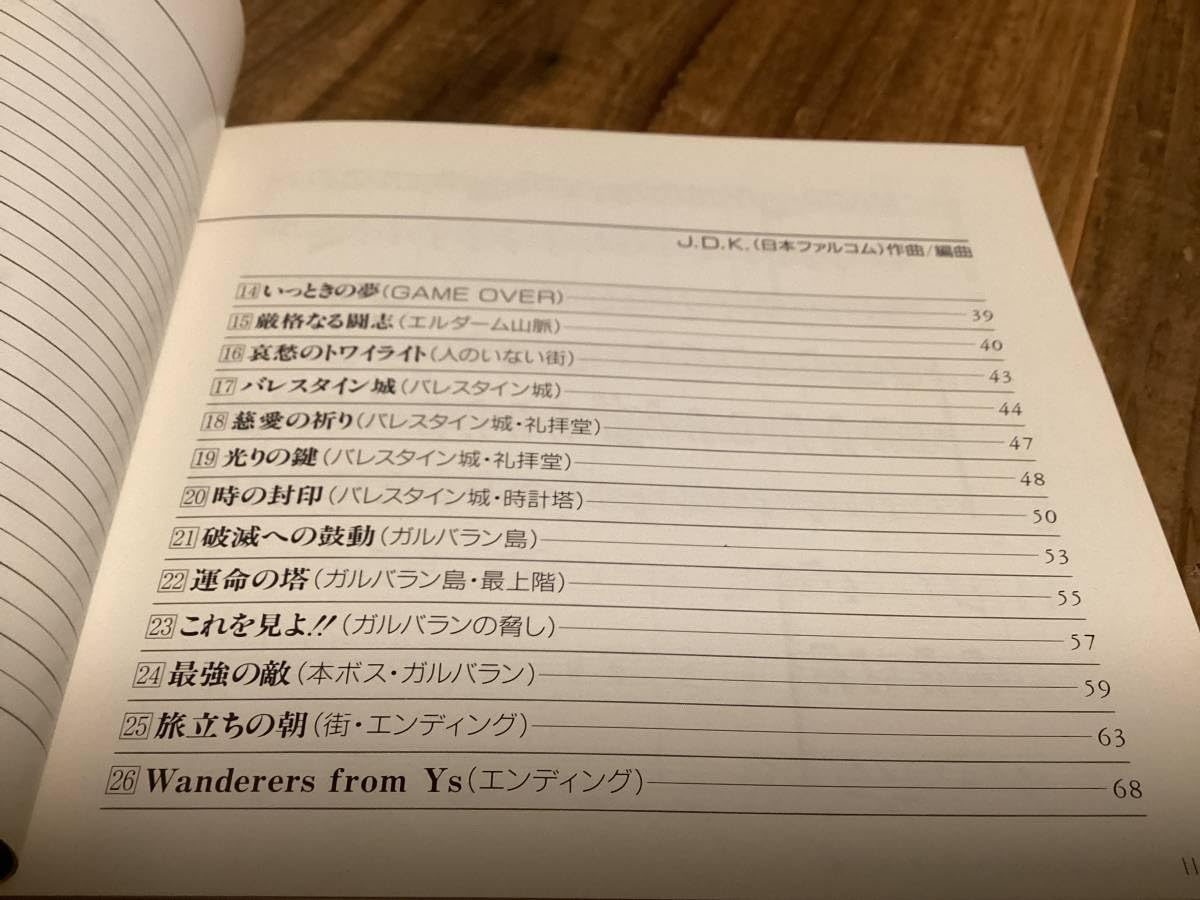 J.D.K.(日本ファルコム)作曲/編曲
14 いっときの夢(GAME OVER) 39
15 厳格なる闘志(エルダーム山脈) 40
16 哀愁のトワイライト(人のいない街) 43
17 バレスタイン城(バレスタイン城) 44
18 慈愛の祈り(バレスタイン城・礼拝堂) 47
19 光りの鍵(バレスタイン城・礼拝堂) 48
20 時の封印(バレスタイン城・時計塔) 50
21 破滅への鼓動(ガルバラン島) 53
22 運命の塔(ガルバラン島・最上階) 55
23 これを見よ!!(ガルバランの脅し) 57
24 最強の敵(本ボス・ガルバラン) 59
25 旅立ちの朝(街・エンディング) 63
26 Wanderers from Ys(エンディング) 68
11